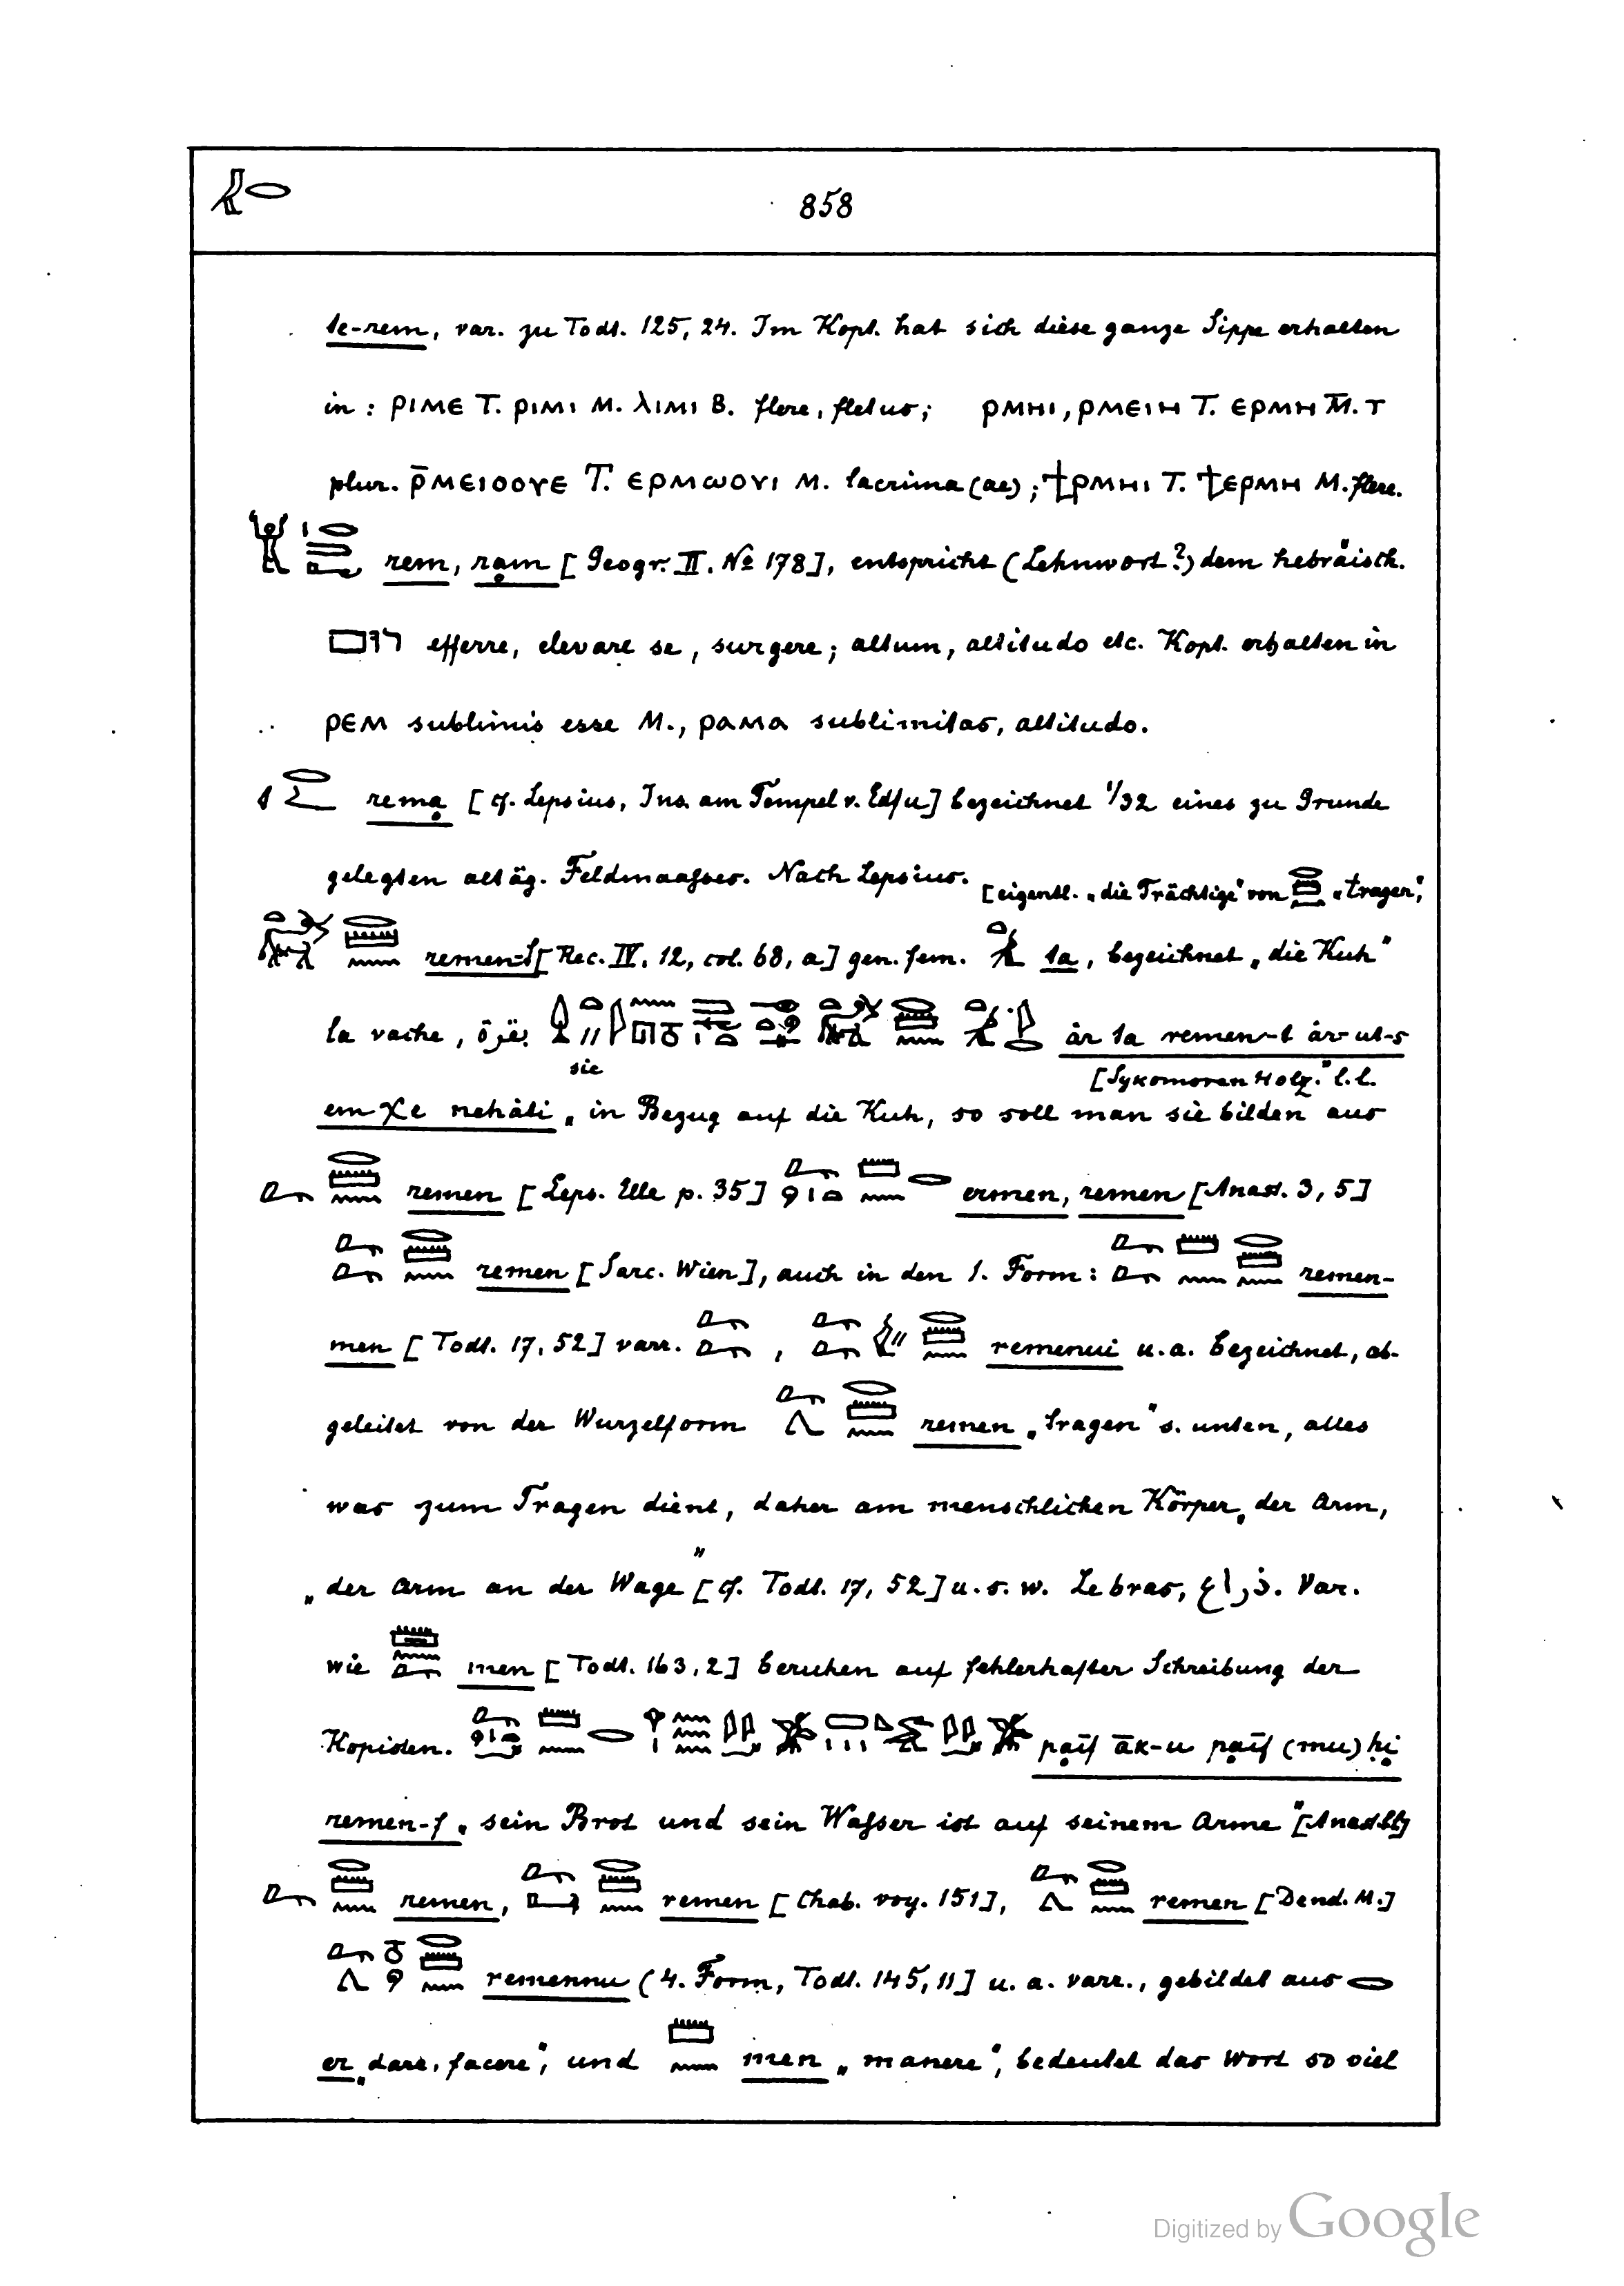 858
te-rem, var. zu Todt. 125, 24. Im Kopt. hat sich diese ganze Sippe erhalten
in: ⲣⲓⲙⲉ T. ⲣⲓⲙⲓ M. ⲗⲓⲙⲓ B. flere, fletus; ⲣⲙⲏⲓ, ⲣⲙⲉⲓⲏ T. ⲉⲣⲙⲏ M. T
plur. ⲣ̄ⲙⲉⲓⲟⲟⲩⲉ T. ⲉⲣⲙⲱⲟⲩⲓ M. lacrima (ae); ϯⲣⲙⲏⲓ T. ϯⲉⲣⲙⲏ M. flere.
rem, rạm [Geogr. II. No 178], entspricht (Lehnwort?) dem hebräisch.
רום efferre, elevare se, surgere; altum, altitudo etc. Kopt. erhalten in
ⲣⲉⲙ sublimis esse M., ⲣⲁⲙⲁ sublimitas, altitudo.
remạ [cf. Lepsius, Ins. am Tempel v. Edfu] bezeichnet 1/32 eines zu Grunde
gelegten altäg. Feldmaaſses. Nach Lepsius. [eigentl. „die Trächtige" von „tragen",
remen-t [Rec. IV, 12, col. 68, a] gen. fem. ta, bezeichnet „die Kuh"
la vache, år ta remen-t år-ut-s
sie [Sykomoren Holz." l. l.
em χe nehåti „in Bezug auf die Kuh, so soll man sie bilden aus
remen [Leps. Elle p. 35] ermen, remen [Anast. 3, 5]
remen [Sarc. Wien], auch in den 1. Form: remen-
men [Todt. 17, 52] varr. , remenui u. a. bezeichnet, ab-
geleitet von der Wurzelform remen „tragen" s. unten, alles
was zum Tragen dient, daher am menschlichen Körper „der Arm,
„der Arm an der Wage" [cf. Todt. 17, 52] u. s. w. Le bras, ذراع. Var.
wie men [Todt. 163, 2] beruhen auf fehlerhafter Schreibung der
Kopisten. pạif āk-u pạif (mu) ḥi
remen-f „sein Brot und sein Waſser ist auf seinem Arme"
remen, remen [Chab. voy. 151], remen [Dend. M.]
remennu (4. Form, Todt. 145, 11] u. a. varr., gebildet aus
er „dare, facere", und men „manere", bedeutet das Wort so viel
Digitized by Google